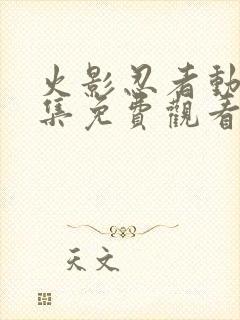 火影忍者動
集免費觀看
天文